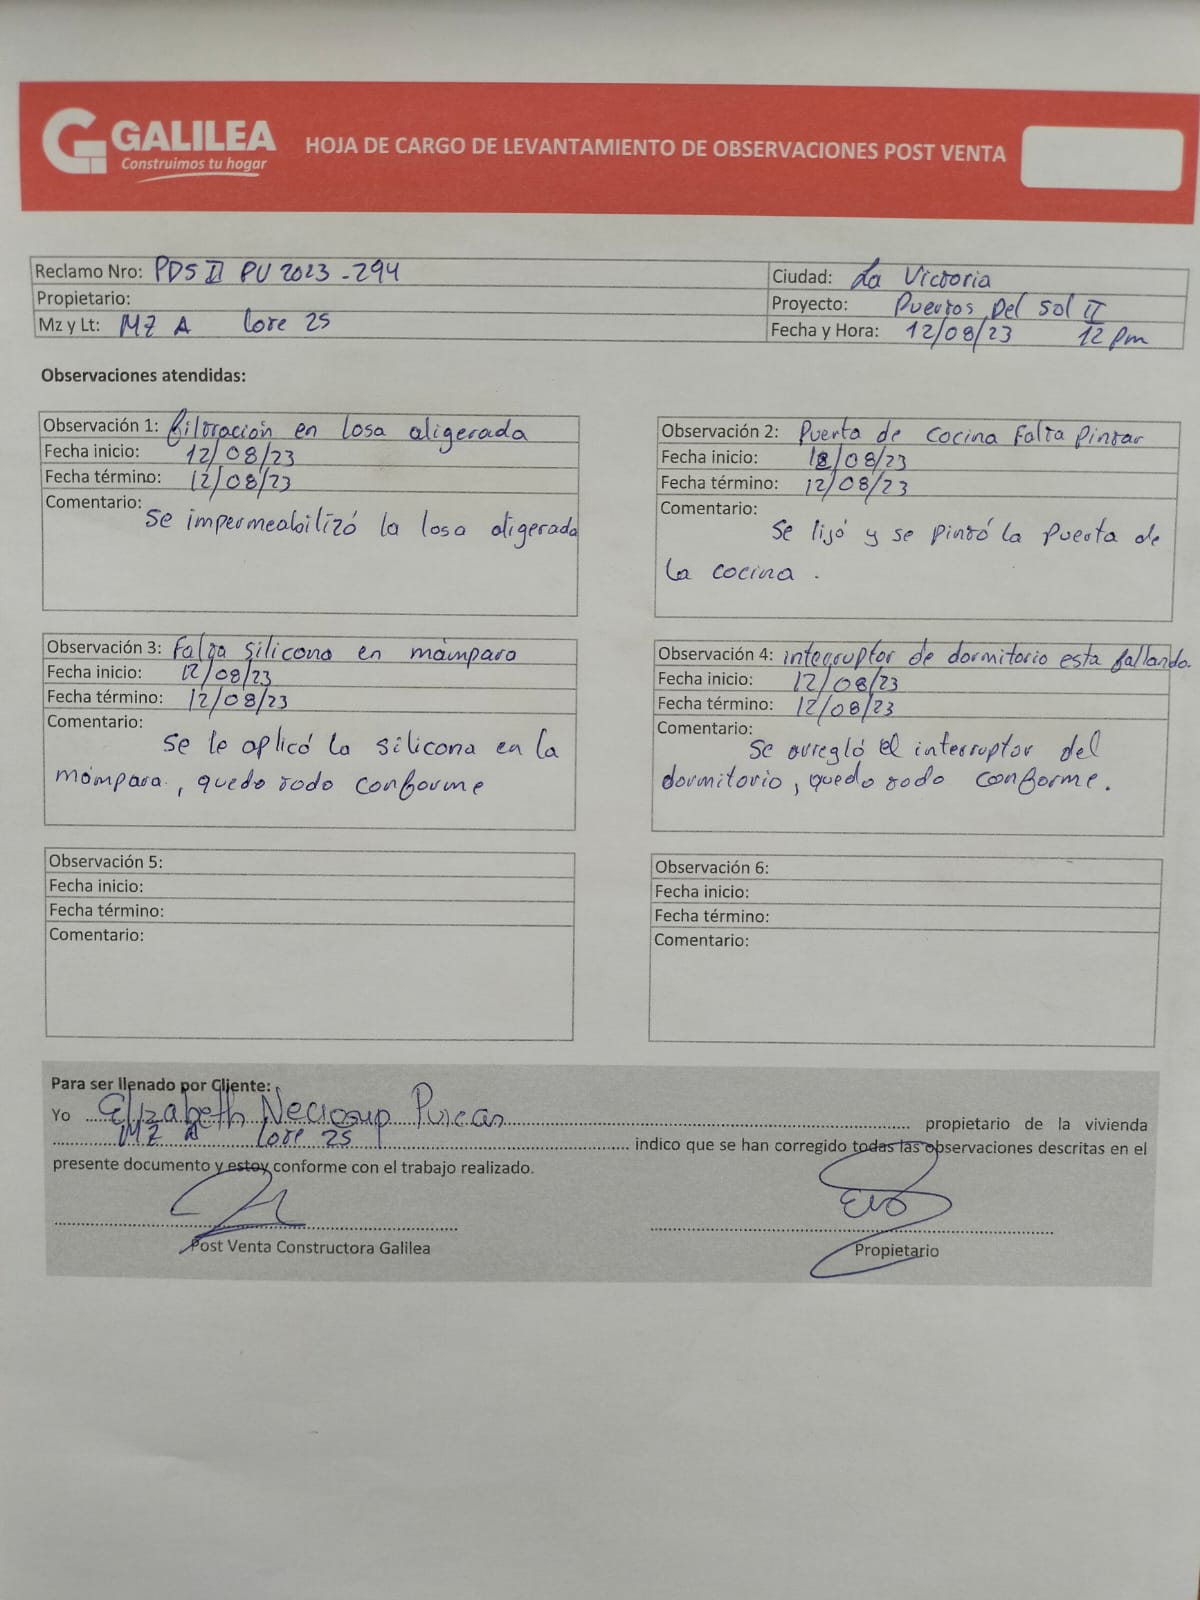 GALILEA
Construimos tu hogar
HOJA DE CARGO DE LEVANTAMIENTO DE OBSERVACIONES POST VENTA
Reclamo Nro: PDS II PV 2023 - 294
Ciudad: La Victoria
Propietario:
Proyecto: Puertos Del Sol II
Mz y Lt: MZ A Lote 25
Fecha y Hora: 12/08/23 12 pm
Observaciones atendidas:
Observación 1: filtración en losa aligerada
Fecha inicio: 12/08/23
Fecha término: 12/08/23
Comentario:
Se impermeabilizó la losa aligerada
Observación 2: Puerta de cocina Falta Pintar
Fecha inicio: 12/08/23
Fecha término: 12/08/23
Comentario:
Se lijó y se pintó la puerta de
la cocina .
Observación 3: Falta silicona en mampara
Fecha inicio: 12/08/23
Fecha término: 12/08/23
Comentario:
Se le aplicó la silicona en la
mampara , quedo todo conforme
Observación 4: interruptor de dormitorio esta fallando.
Fecha inicio: 12/08/23
Fecha término: 12/08/23
Comentario:
Se arregló el interruptor del
dormitorio , quedo todo conforme.
Observación 5:
Fecha inicio:
Fecha término:
Comentario:
Observación 6:
Fecha inicio:
Fecha término:
Comentario:
Para ser llenado por Cliente:
Yo Elizabeth Neciosup Puican propietario de la vivienda
MZ A Lote 25 indico que se han corregido todas las observaciones descritas en el
presente documento y estoy conforme con el trabajo realizado.
Post Venta Constructora Galilea
Propietario